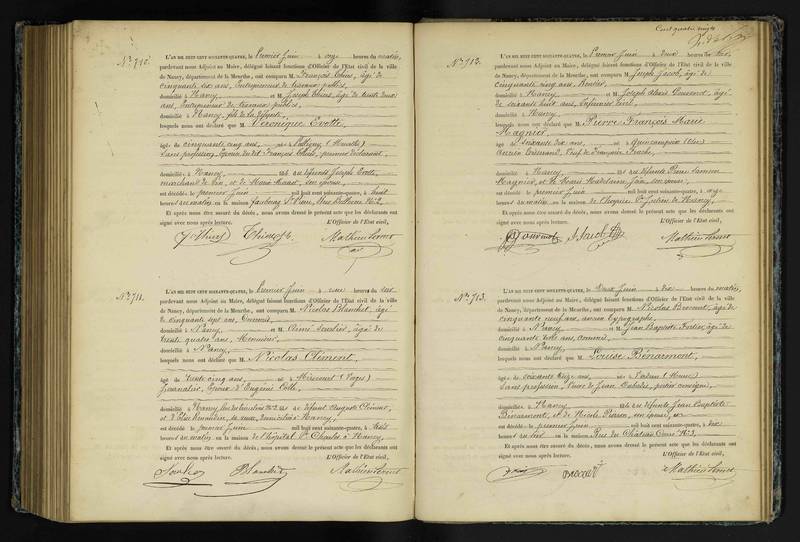 No. 710.
L'AN MIL HUIT CENT SOIXANTE-QUATRE, le Premier Juin à onze heures du matin,
pardevant nous Adjoint au Maire, délégué faisant fonctions d'Officier de l'Etat civil de la ville
de Nancy, département de la Meurthe, ont comparu M. François Thiery, âgé de
cinquante six ans, Entrepreneur de travaux publics,
domicilié à Nancy et M. Joseph Thiery, âgé de trente deux
ans, Entrepreneur de travaux publics,
domicilié à Nancy, fils de la défunte,
lesquels nous ont déclaré que M. Véronique Evotte,
âgé de cinquante cinq ans, né à (Meurthe)
Sans profession, Epouse du dit François Thiery, premier déclarant,
domicilié à Nancy, des défunts Joseph Evotte,
marchand de vin, et de Marie son épouse,
est décédé le premier Juin mil huit cent soixante-quatre, à huit
heures du matin, en la maison faubourg St. Pierre, No. 2,
Et après nous être assuré du décès, nous avons dressé le présent acte que les déclarants ont
signé avec nous après lecture. L'Officier de l'Etat civil,
No. 711.
L'AN MIL HUIT CENT SOIXANTE-QUATRE, le Premier Juin à une heures du soir
pardevant nous Adjoint au Maire, délégué faisant fonctions d'Officier de l'Etat civil de la ville
de Nancy, département de la Meurthe, ont comparu M. Nicolas Blanchet, âgé
de cinquante sept ans,
domicilié à Nancy, et M. Aimé âgé de
trente quatre ans, Menuisier,
domicilié à Nancy,
lesquels nous ont déclaré que M. Nicolas Clément,
âgé de trente cinq ans, né à Mirecourt (Vosges)
Journalier, Epoux d'Eugénie
domicilié à Nancy, No. 2 de défunt Auguste Clément,
et sa veuve, domiciliée à Nancy,
est décédé le premier Juin mil huit cent soixante-quatre, à
heures du matin, en la maison de l'hôpital St. Charles à Nancy,
Et après nous être assuré du décès, nous avons dressé le présent acte que les déclarants ont
signé avec nous après lecture. L'Officier de l'Etat civil,
Blanchet
Cent quatre vingt
No. 712.
L'AN MIL HUIT CENT SOIXANTE-QUATRE, le Premier Juin à deux heures du soir,
pardevant nous Adjoint au Maire, délégué faisant fonctions d'Officier de l'Etat civil de la ville
de Nancy, département de la Meurthe, ont comparu M. Joseph Jacob, âgé de
cinquante cinq ans, Rentier,
domicilié à Nancy et M. Joseph Alexis âgé
de soixante huit ans,
domicilié à Nancy
lesquels nous ont déclaré que M. Pierre François Marie
Magnier,
âgé de soixante dix ans, né à Quincampoix (Oise)
Ancien Veuf de Françoise
domicilié à Nancy des défunts Pierre
Magnier, et de Marie Madeleine son épouse,
est décédé le premier Juin mil huit cent soixante-quatre, à onze
heures du matin, en la maison de l'hospice St. Julien de Nancy,
Et après nous être assuré du décès, nous avons dressé le présent acte que les déclarants ont
signé avec nous après lecture. L'Officier de l'Etat civil,
No. 713.
L'AN MIL HUIT CENT SOIXANTE-QUATRE, le Deux Juin à dix heures du matin,
pardevant nous Adjoint au Maire, délégué faisant fonctions d'Officier de l'Etat civil de la ville
de Nancy, département de la Meurthe, ont comparu M. Nicolas Brocard, âgé de
cinquante neuf ans, ancien typographe,
domicilié à Nancy et M. Jean Baptiste Fortier, âgé de
cinquante trois ans, commis,
domicilié à Nancy
lesquels nous ont déclaré que M. Louise Bénarmont,
âgé de soixante seize ans, né à Verdun (Meuse)
Sans profession, Veuve de Jean
domicilié à Nancy de défunts Jean Baptiste
Bénarmont, et de Nicole Pierson, son épouse,
est décédé le premier Juin mil huit cent soixante-quatre, à dix
heures du soir en la maison Rue du Château No. 3,
Et après nous être assuré du décès, nous avons dressé le présent acte que les déclarants ont
signé avec nous après lecture. L'Officier de l'Etat civil,
Brocard